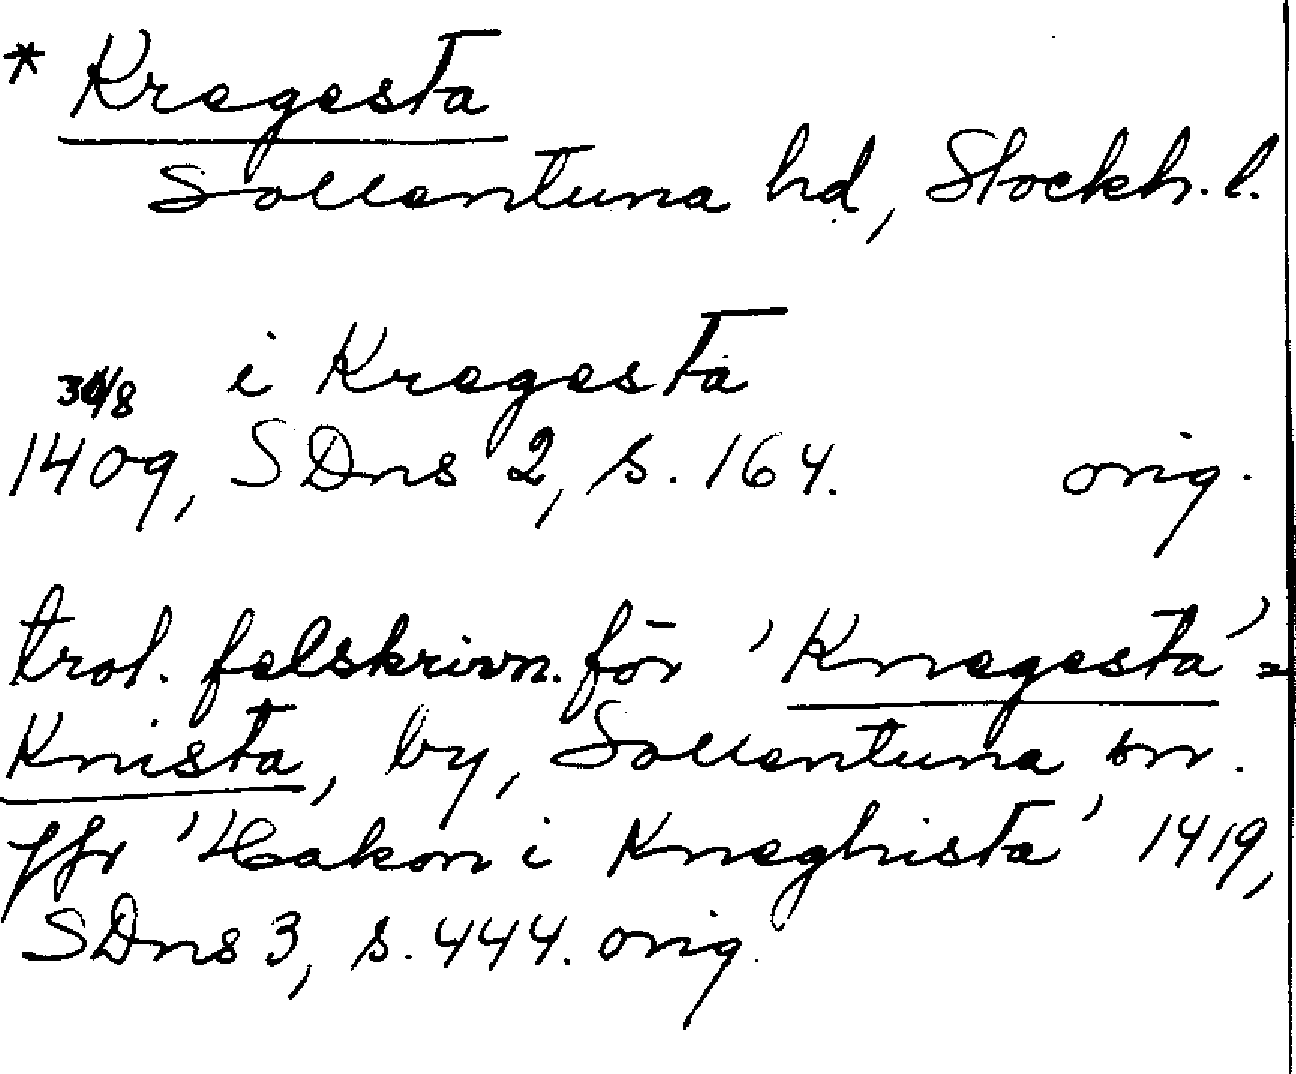 * Kregesta
Sollentuna hd, Stockh. l.
i Kregesta
1409, SDns 2, s. 164. orig.
trol. felskrivn. för 'Knegesta' =
Knista, by, Sollentuna sn.
Jfr 'Hakon i Kneghista' 1419,
SDns 3, s. 444. orig.